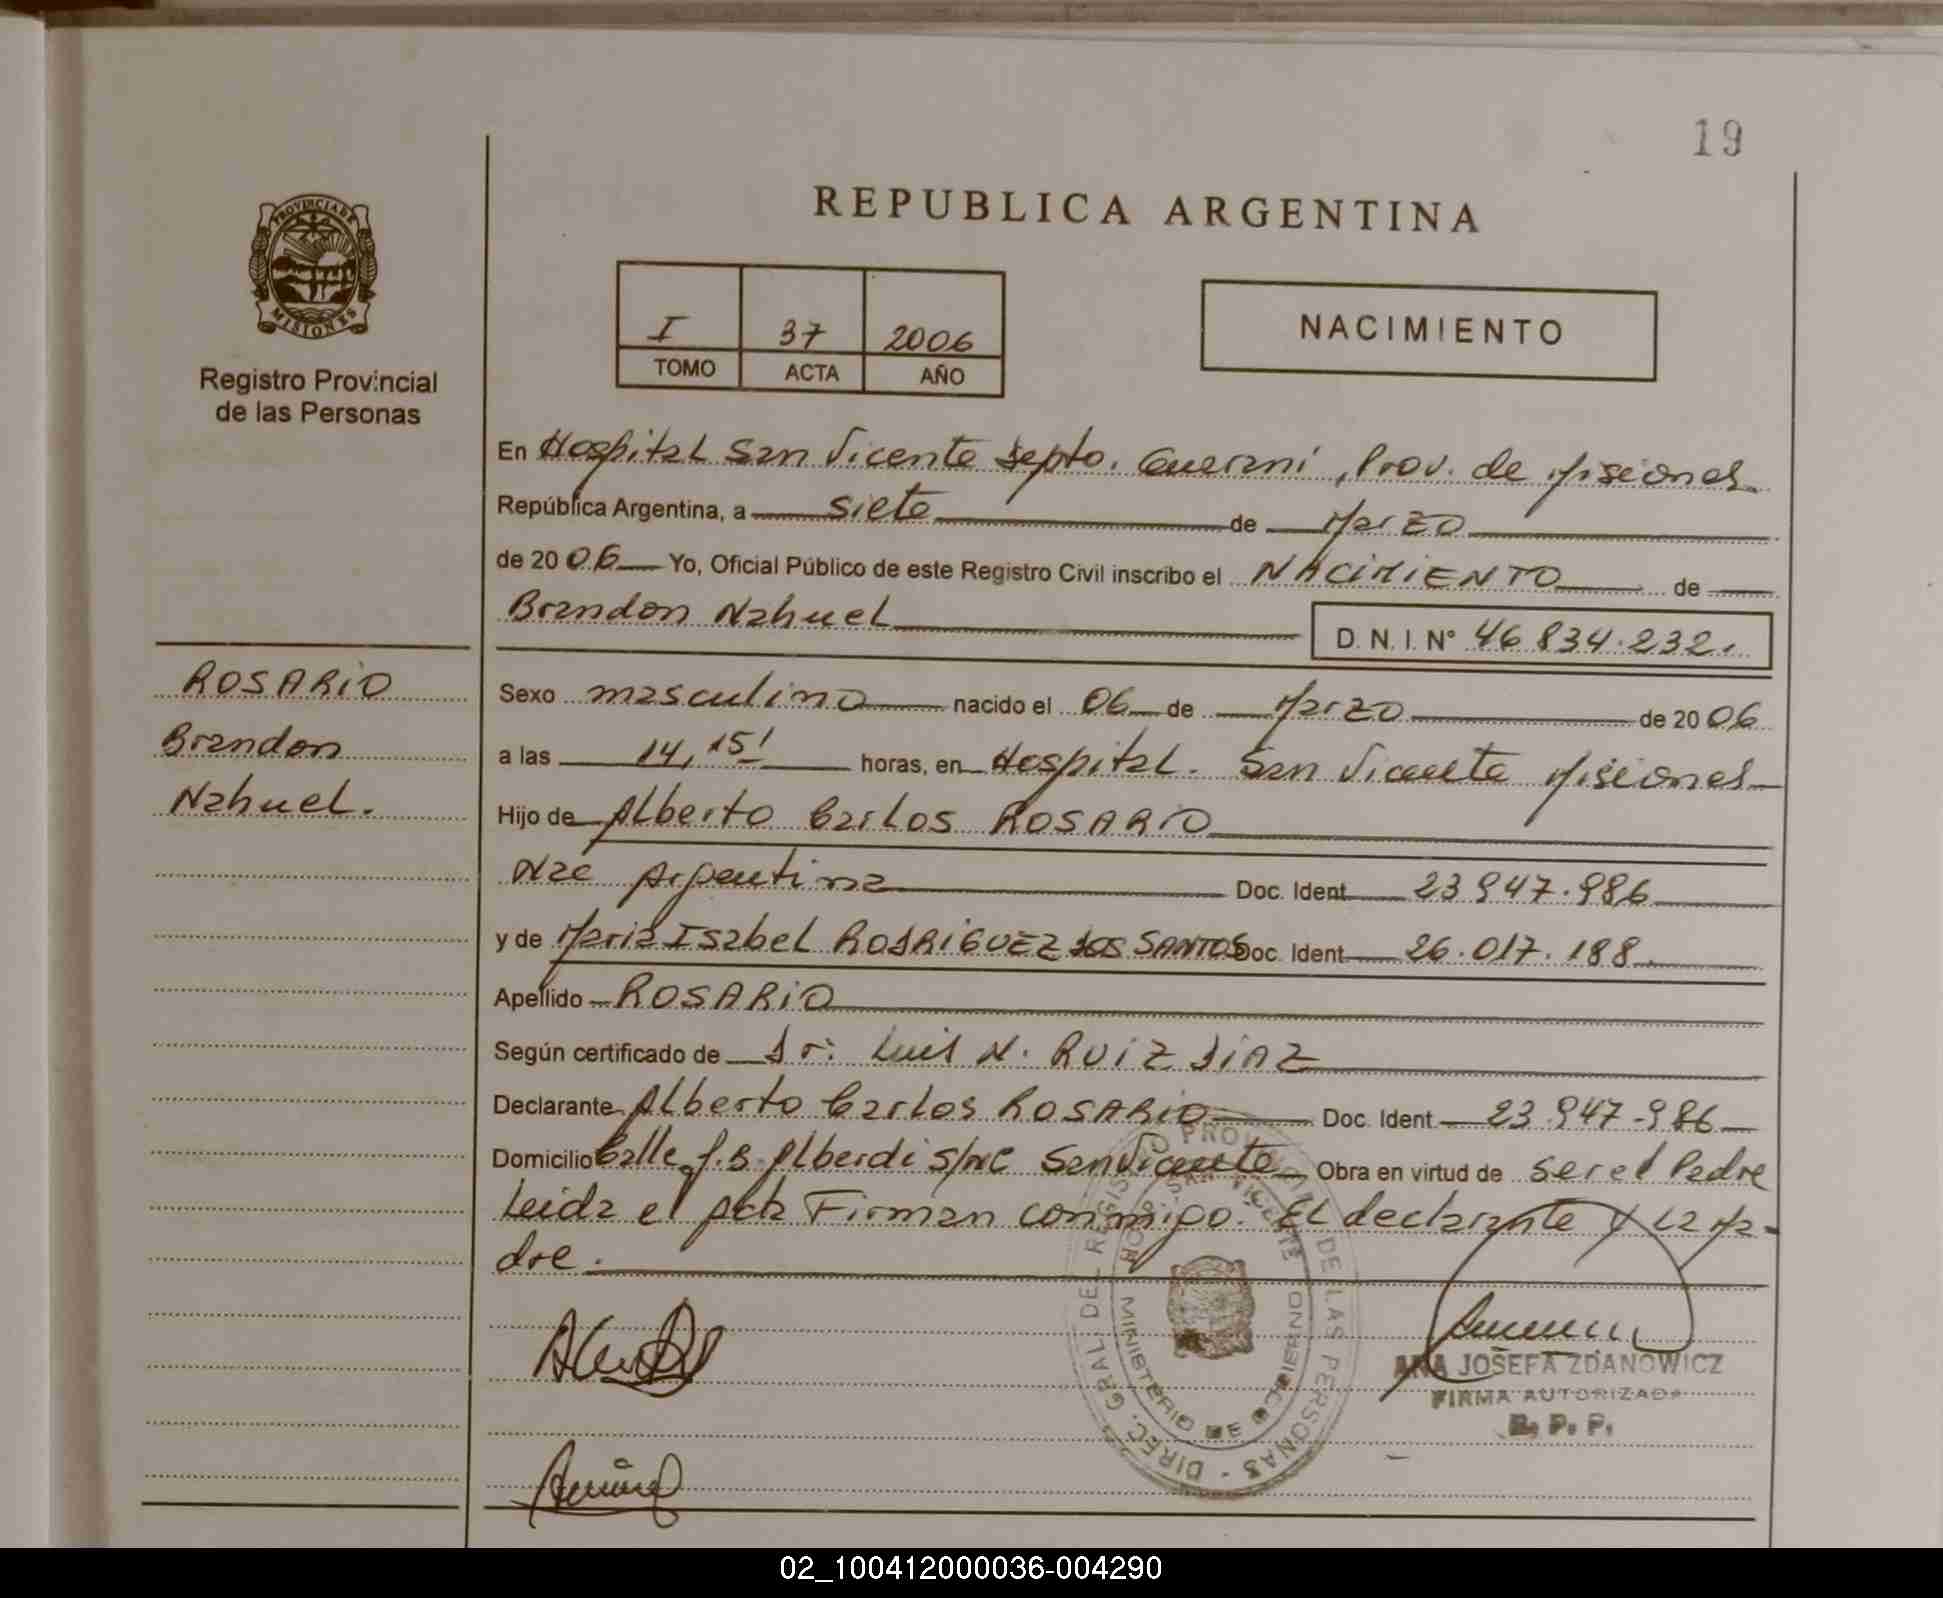 19
PROVINCIA DE
MISIONES
Registro Provincial
de las Personas
REPUBLICA ARGENTINA
I 37 2006
TOMO ACTA AÑO
NACIMIENTO
En Hospital San Vicente Depto. Guarani, Prov. de Misiones
República Argentina, a siete de Marzo
de 2006 Yo, Oficial Público de este Registro Civil inscribo el NACIMIENTO de
Brandon Nahuel D. N. I. N° 46 834.232.
ROSARIO
Brandon
Nahuel.
Sexo masculino nacido el 06 de Marzo de 2006
a las 14,15' horas, en Hospital. San Vicente Misiones
Hijo de Alberto Carlos ROSARIO
Nac Argentina Doc. Ident. 23 947.986
y de Maria Isabel RODRIGUEZ DOS SANTOS Doc. Ident. 26.017.188
Apellido ROSARIO
Según certificado de Dr: Luis N. RUIZ DIAZ
Declarante Alberto Carlos ROSARIO Doc. Ident. 23.947.986
Domicilio Calle J.B. Alberdi S/Nº San Vicente Obra en virtud de ser el Padre
Leida el Acta Firman conmigo. El declarante y La Ma-
dre.
DIREC. GRAL. DEL REGISTRO PROV. DE LAS PERSONAS
HOSP. SAN VICENTE
MINISTERIO DE GOBIERNO
ANA JOSEFA ZDANOWICZ
FIRMA AUTORIZADA
R. P. P.
02_100412000036-004290